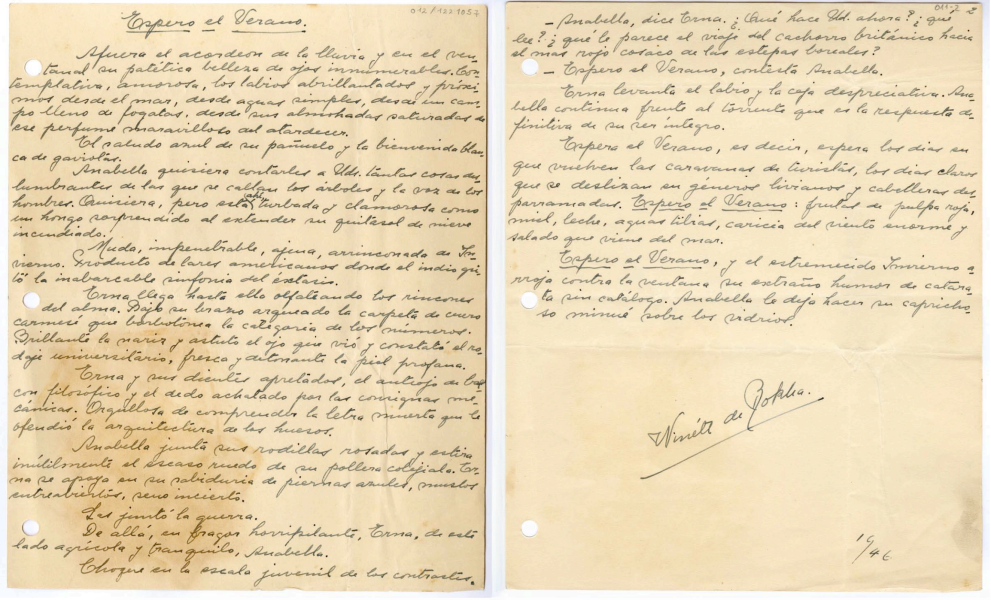 Espero el Verano.
012/1221057
Afuera el acordeon de la lluvia y en el ven-
tanal su patética belleza de ojos innumerables. Con
templativa, amorosa, los labios abrillantados y próxi-
mos desde el mar, desde aguas simples, desde un cam-
po lleno de fogatas, desde sus almohadas saturadas de
ese perfume maravilloso del atardecer.
El saludo azul de su pañuelo y la bienvenida blan-
ca de gaviotas.
Anabella quisiera contarles a Uds. tantas cosas des-
lumbrantes de las que se callan los árboles y la voz de los
hombres. Quisiera, pero está turbada y clamorosa como
un hongo sorprendido al extender su quitasol de nieve
incendiado.
Muda, impenetrable, ajena, arrinconada de In-
vierno. Producto de lares americanos donde el indio gri-
tó la inabarcable sinfonía del éxtasis.
Erna llega hasta ella olfateando los rincones
del alma. Bajo su brazo arqueado la carpeta de cuero
carmesí que borbotonea la categoría de los números.
Brillante la nariz y astuto el ojo que vió y constató el ro-
daje universitario, fresca y detonante la piel profana.
Erna y sus dientes apretados, el anteojo de bal-
con filosófico y el dedo achatado por las consignas me-
cánicas. Orgullosa de comprender la letra muerta que le
ofendió la arquitectura de los huesos.
Anabella junta sus rodillas rosadas y estira
inútilmente el escaso ruedo de su pollera colejiala. Er-
na se apoya en su sabiduría de piernas azules, muslos
entreabiertos, seno incierto.
Las juntó la guerra.
De allá, en fragor horripilante, Erna, de este
lado agrícola y tranquilo, Anabella.
Choque en la escala juvenil de los contrastes.
011-2 2
– Anabella, dice Erna. ¿Qué hace Ud. ahora? ¿qué
lee? ¿qué le parece el viaje del cachorro británico hacia
el mar rojo cosaco de las estepas boreales?
– Espero el Verano, contesta Anabella.
Erna levanta el labio y la ceja despreciativa. Ana-
bella continúa frente al torrente que es la respuesta de-
finitiva de su ser íntegro.
Espero el Verano, es decir, espera los días en
que vuelven las caravanas de turistas, los días claros
que se deslizan en géneros livianos y cabelleras des-
parramadas. Espero el Verano: frutas de pulpa roja,
miel, leche, aguas tibias, caricia del viento enorme y
salado que viene del mar.
Espero el Verano, y el estremecido Invierno a-
rroja contra la ventana su extraño humor de catara-
ta sin catálogo. Anabella le deja hacer su capricho-
so minué sobre los vidrios.
Winétt de Rokha.
19/46